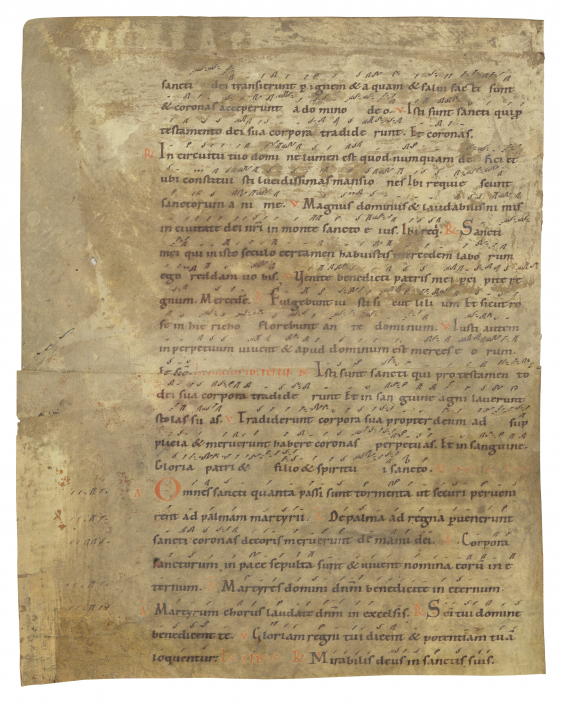 sancti dei transierunt p ignem & aquam & salui facti sunt
& coronas acceperunt a domino deo. v Isti sunt sancti qui p
testamento dei sua corpora tradide runt. Et coronas.
R In circuitu tuo domi ne lumen est quod numquam de fici et
ubi constitui sti lucidissimas mansio nes Ibi requie scunt
sanctorum a ni me. v Magnus dominus & laudabilis ni mis
in ciuitate dei nri in monte sancto e ius. Ibi req. R Sancti
mei qui in isto seculo certamen habuistis mercedem labo rum
ego reddam uo bis. v Venite benedicti patris mei per cipite re
gnum. Mercede. R Fulgebunt iu sti si cut lili um Et sicut ro
se in hie richo florebunt an te dominum. v Iusti autem
in perpetuum uiuent & apud dominum est merces e o rum.
R Isti sunt sancti qui pro testamen to
dei sua corpora tradide runt Et in san guine agni lauerunt
stolas su as. v Tradiderunt corpora sua propter deum ad sup
plicia & meruerunt habere coronas perpetuas. Et in sanguine.
Gloria patri & filio & spiritu i sancto.
A Omnes sancti quanta passi sunt tormenta ut securi perueni
rent ad palmam martyrii. De palma ad regna puenerunt
sancti coronas decoris meruerunt de manu dei. Corpora
sanctorum in pace sepulta sunt & uiuent nomina eorum in e
ternum. Martyres domini dnm benedicite in eternum.
Martyrum chorus laudate dnm in excelsis. R Sci tui domine
benedicent te. v Gloriam regni tui dicent & potentiam tuā
loquentur. R Mirabilis deus in sanctis suis.